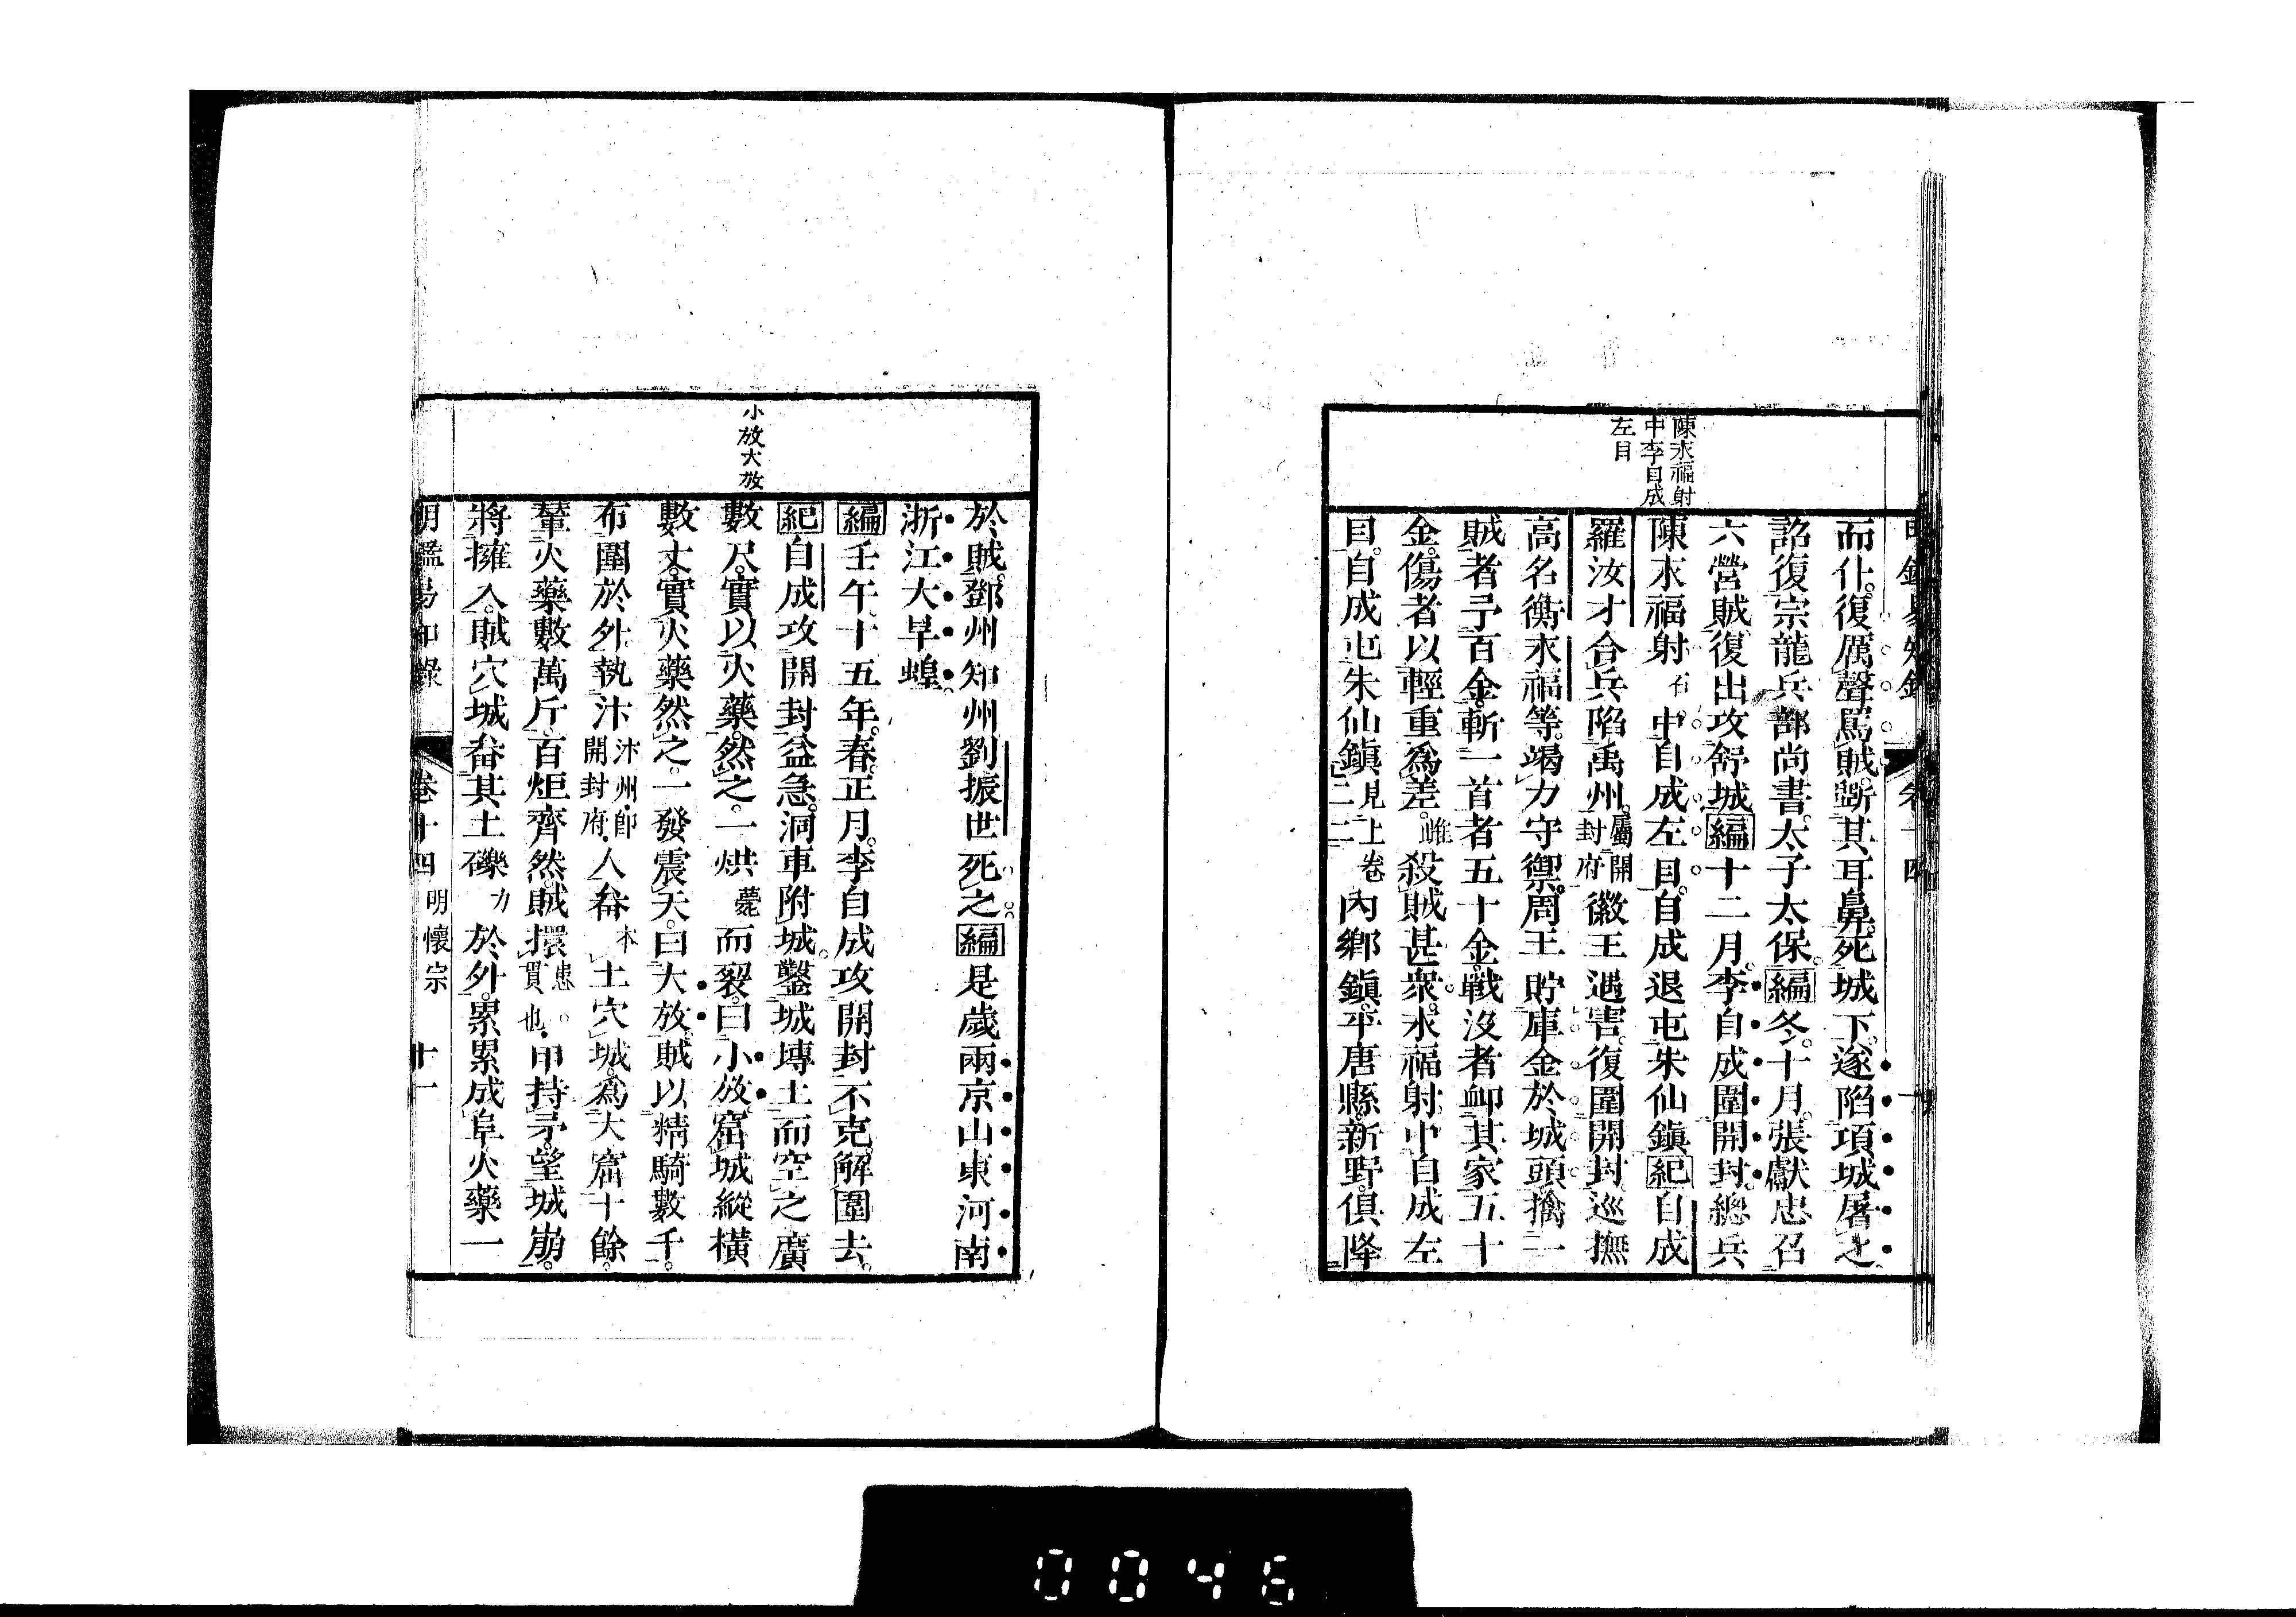 陳永福射
中李自成
左目
而仆。復厲聲罵賊。斷其耳鼻死城下。遂陷項城屠之
詔復宗龍兵部尚書。太子太保。編冬。十月。張獻忠召
六營賊復出攻舒城編十二月。李自成圍開封。總兵
陳永福射石中自成左目。自成退屯朱仙鎮紀自成
羅汝才合兵陷禹州。屬開封府徽王遇害。復圍開封巡撫
高名衡永福等。竭力守禦。周王貯庫金於城頭擒一
賊者予百金。斬一首者五十金。戰沒者卹其家五十
金。傷者以輕重爲差。雎殺賊甚衆。永福射中自成左
目。自成屯朱仙鎮。見上卷二二內鄉鎮。平唐縣。新野。俱降
小放大放
於賊。鄧州知州劉振世死之編是歲兩京山東河南
浙江大旱蝗。
編壬午十五年。春。正月。李自成攻開封不克。解圍去。
紀自成攻開封益急。洞車附城。鑿城塼土而空之廣
數尺。實以火藥。然之。一烘薨而裂。曰小放。窟城縱橫
數丈。實火藥然之。一發震天。曰大放。賊以精騎數千。
布圍於外。執汴汴州。卽開封府。人畚本土穴城。爲大窟十餘。
輦火藥數萬斤。百炬齊然。賊擐患貫也。甲持矛。望城崩。
將擁入。賊穴城畚其土礫力於外。累累成阜火藥一
明鑑易知錄 卷十四 明懷宗 十一
0046